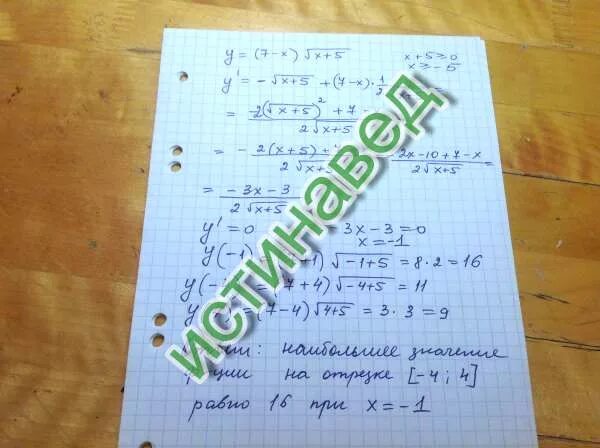 y = (7-x) √x+5 x+5≥0
x ≥ -5
y' = -√x+5 + (7-x)· 1/2
= 2(√x+5)² + 7 - / 2√x+5
= - 2(x+5)+ / 2√x+5 2x-10+7-x / 2√x+5 =
= -3x-3 / 2√x+5
y' = 0 3x-3=0
x=-1
y(-1) √-1+5 = 8·2=16
y(- = 7+4) √-4+5 = 11
y = (7-4) √4+5 = 3·3=9
наибольшее значение
на отрезке [-4; 4]
равно 16 при x=-1
истинавед